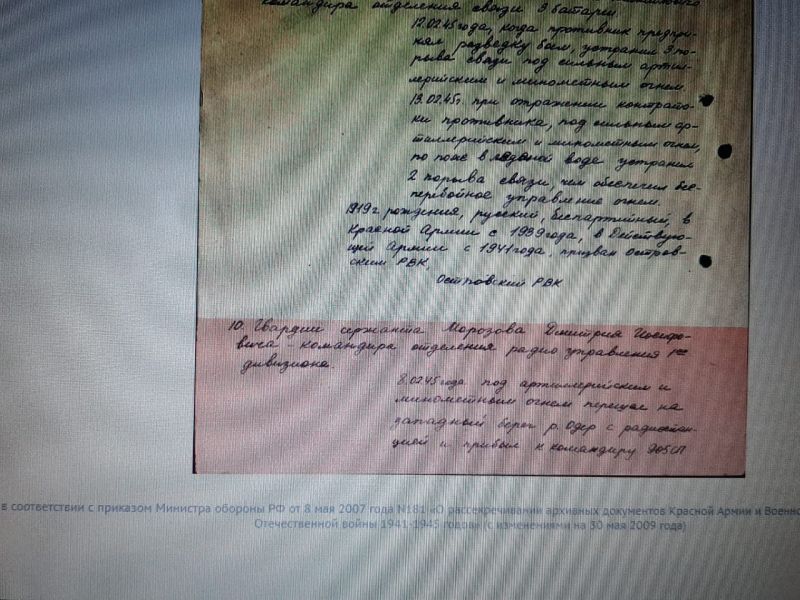 командира отделения связи 3 батареи.
12.02.45 года, когда противник предпри-
нял разведку боем, устранил 3 по-
рыва связи под сильным артил-
лерийским и минометным огнем.
13.02.45г. при отражении контрата-
ки противника, под сильным ар-
тиллерийским и минометным огнем,
по пояс в ледяной воде устранил
2 порыва связи, чем обеспечил бес-
перебойное управление огнем.
1919 г. рождения, русский, беспартийный, в
Красной Армии с 1939 года, в Действую-
щей Армии с 1941 года, призван Остров-
ским РВК,
Островский РВК
10. Гвардии сержанта Морозова Дмитрия Иосифо-
вича - командира отделения радио управления 1го
дивизиона.
8.02.45 года под артиллерийским и
минометным огнем перешел на
западный берег р. Одер с радиостан-
цией и прибыл к командиру 905 СП
в соответствии с приказом Министра обороны РФ от 8 мая 2007 года N181 «О рассекречивании архивных документов Красной Армии и Военно
Отечественной войны 1941-1945 годов» (с изменениями на 30 мая 2009 года)